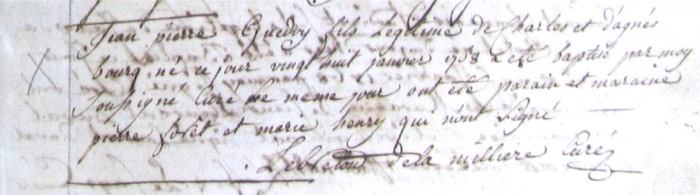 Jean pierre Quedry fils Legitime de Charles et d'agnés
bourg. né ce jour vingt huit janvier 1758 a eté baptisé par moy
soussigné Curé Le meme jour ont eté parain et maraine
pierre forêt et marie henry qui n'ont signé
de la milliere Curé